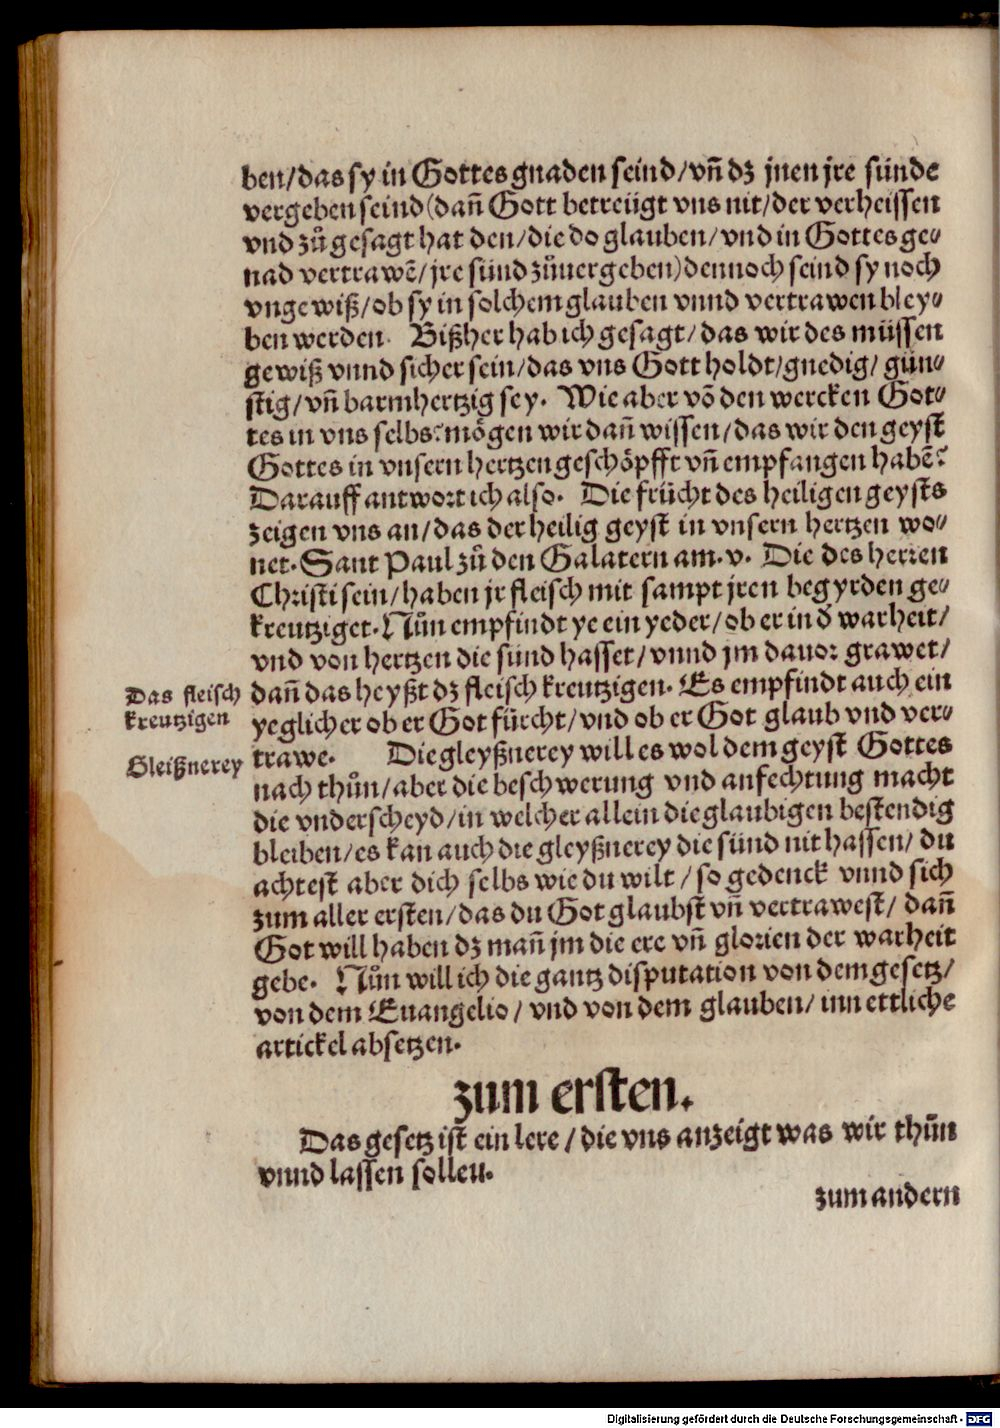 ben/das sy in Gottes gnaden seind/vñ dz jnen jre sünde
vergeben seind (dañ Gott betreügt vns nit/der verheissen
vnd zů gesagt hat den/die do glauben/vnd in Gottes ge⸗
nad vertrawẽ/jre sünd zůuergeben) dennoch seind sy noch
vngewiß/ob sy in solchem glauben vnnd vertrawen bley⸗
ben werden. Bißher hab ich gesagt/das wir des müssen
gewiß vnnd sicher sein/das vns Gott holdt/gnedig/gün⸗
stig/vñ barmhertzig sey. Wie aber võ den wercken Got⸗
tes in vns selbs? mögen wir dañ wissen/das wir den geyst
Gottes in vnsern hertzen geschöpfft vñ empfangen habẽ?
Darauff antwort ich also. Die frücht des heiligen geysts
zeigen vns an/das der heilig geyst in vnsern hertzen wo⸗
net. Sant Paul zů den Galatern am. v. Die des herren
Christi sein/haben jr fleisch mit sampt jren begyrden ge⸗
kreutziget. Nůn empfindt ye ein yeder/ob er in d̕ warheit/
vnd von hertzen die sünd hasset/vnnd jm dauor grawet/
Das fleisch kreutzigen
dañ das heyßt dz fleisch kreutzigen. Es empfindt auch ein
yeglicher ob er Got fürcht/vnd ob er Got glaub vnd ver⸗
Gleißnerey
trawe. Die gleyßnerey will es wol dem geyst Gottes
nach thůn/aber die beschwerung vnd anfechtung macht
die vnderscheyd/in welcher allein die glaubigen bestendig
bleiben/es kan auch die gleyßnerey die sünd nit hassen/du
achtest aber dich selbs wie du wilt/so gedenck vnnd sich
zum aller ersten/das du Got glaubst vñ vertrawest/dañ
Got will haben dz mañ jm die ere vñ glorien der warheit
gebe. Nůn will ich die gantz disputation von dem gesetz/
von dem Euangelio/vnd von dem glauben/inn ettliche
artickel absetzen.
zum ersten.
Das gesetz ist ein lere/die vns anzeigt was wir thůn
vnnd lassen sollen.
zum andern
Digitalisierung gefördert durch die Deutsche Forschungsgemeinschaft - DFG